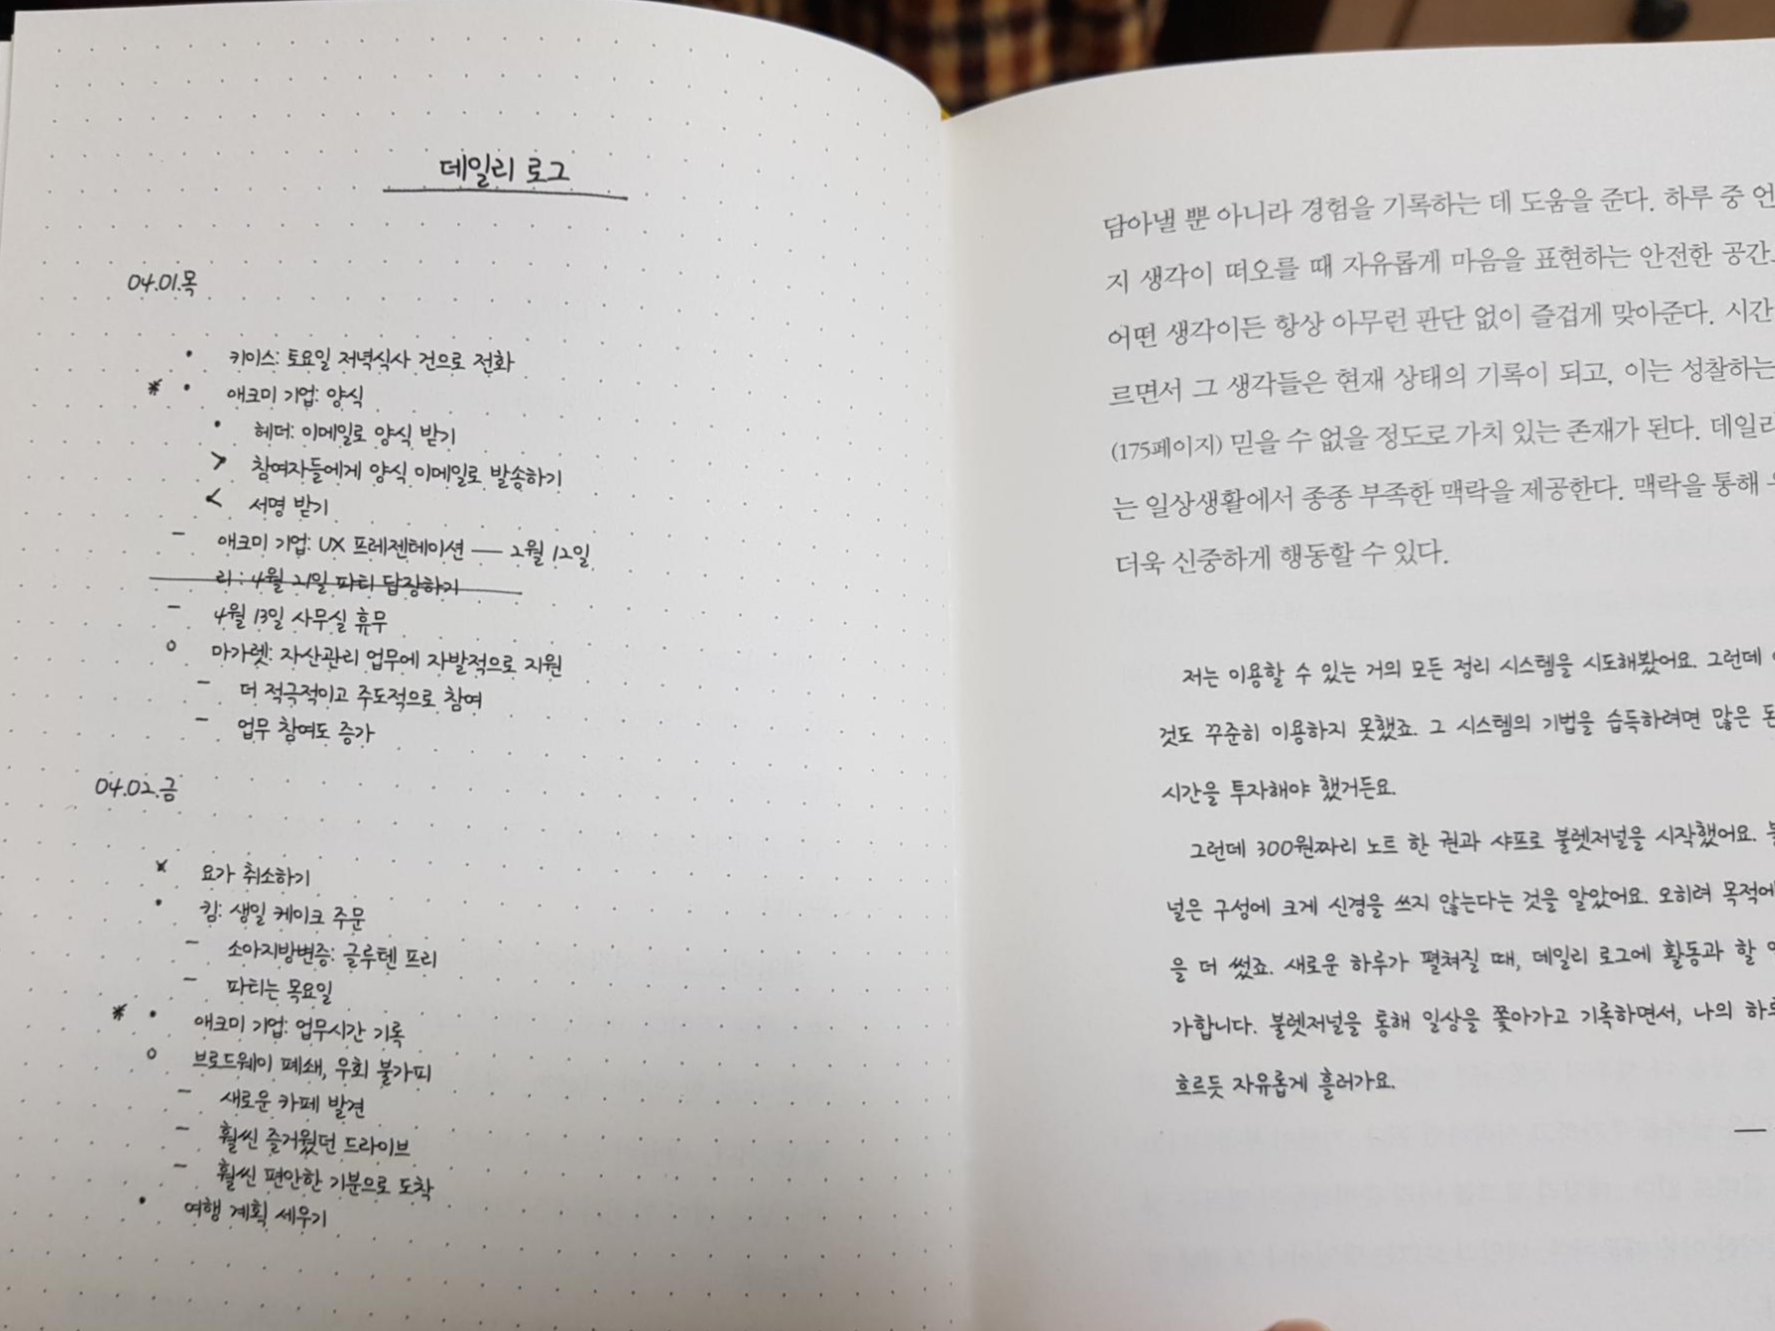 데일리 로그
04.01.목
• 키이스: 토요일 저녁식사 건으로 전화
* • 애크미 기업: 양식
• 헤더: 이메일로 양식 받기
> 참여자들에게 양식 이메일로 발송하기
< 서명 받기
– 애크미 기업: UX 프레젠테이션 — 2월 12일
리: 4월 21일 파티 답장하기
– 4월 13일 사무실 휴무
o 마가렛: 자산관리 업무에 자발적으로 지원
– 더 적극적이고 주도적으로 참여
– 업무 참여도 증가
04.02.금
x 요가 취소하기
• 킴: 생일 케이크 주문
– 소아지방변증: 글루텐 프리
– 파티는 목요일
* • 애크미 기업: 업무시간 기록
o 브로드웨이 폐쇄, 우회 불가피
– 새로운 카페 발견
– 훨씬 즐거웠던 드라이브
– 훨씬 편안한 기분으로 도착
• 여행 계획 세우기
담아낼 뿐 아니라 경험을 기록하는 데 도움을 준다. 하루 중 언
지 생각이 떠오를 때 자유롭게 마음을 표현하는 안전한 공간
어떤 생각이든 항상 아무런 판단 없이 즐겁게 맞아준다. 시간
르면서 그 생각들은 현재 상태의 기록이 되고, 이는 성찰하는
(175페이지) 믿을 수 없을 정도로 가치 있는 존재가 된다. 데일리
는 일상생활에서 종종 부족한 맥락을 제공한다. 맥락을 통해
더욱 신중하게 행동할 수 있다.
저는 이용할 수 있는 거의 모든 정리 시스템을 시도해봤어요. 그런데
것도 꾸준히 이용하지 못했죠. 그 시스템의 기법을 습득하려면 많은 돈
시간을 투자해야 했거든요.
그런데 300원짜리 노트 한 권과 샤프로 불렛저널을 시작했어요.
널은 구성에 크게 신경을 쓰지 않는다는 것을 알았어요. 오히려 목적에
을 더 썼죠. 새로운 하루가 펼쳐질 때, 데일리 로그에 활동과 할
가합니다. 불렛저널을 통해 일상을 쫓아가고 기록하면서, 나의 하루
흐르듯 자유롭게 흘러가요.
—